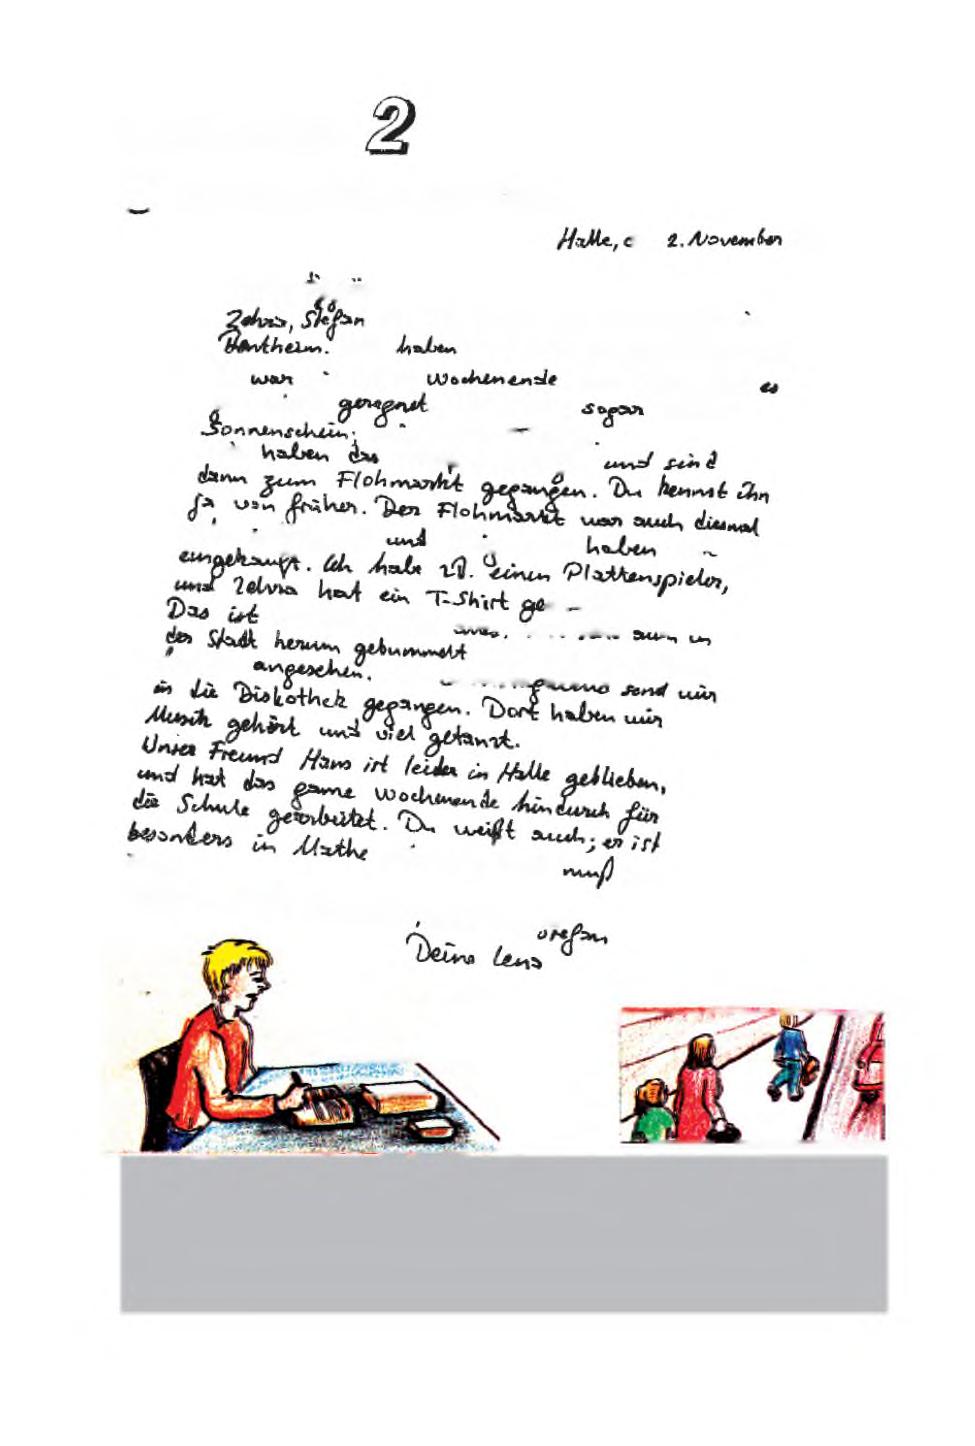 2
Halle, 2. November
Zehra, Stefan
Bentheim. haben
war Wochenende es
geregnet sogar
Sonnenschein.
haben das und sind
dann zum Flohmarkt gegangen. Du kennst ihn
ja von früher. Der Flohmarkt war auch diesmal
und haben
eingekauft. Ich habe z.B. einen Plattenspieler,
und Zehra hat ein T-Shirt ge
Das ist
der Stadt herum gebummelt
angesehen. sind wir
in die Diskothek gegangen. Dort haben wir
Musik gehört und viel getanzt.
Unser Freund Hans ist leider in Halle geblieben,
und hat das ganze Wochenende hindurch für
die Schule gearbeitet. Du weißt auch; er ist
besonders in Mathe
muß
Deine Lena